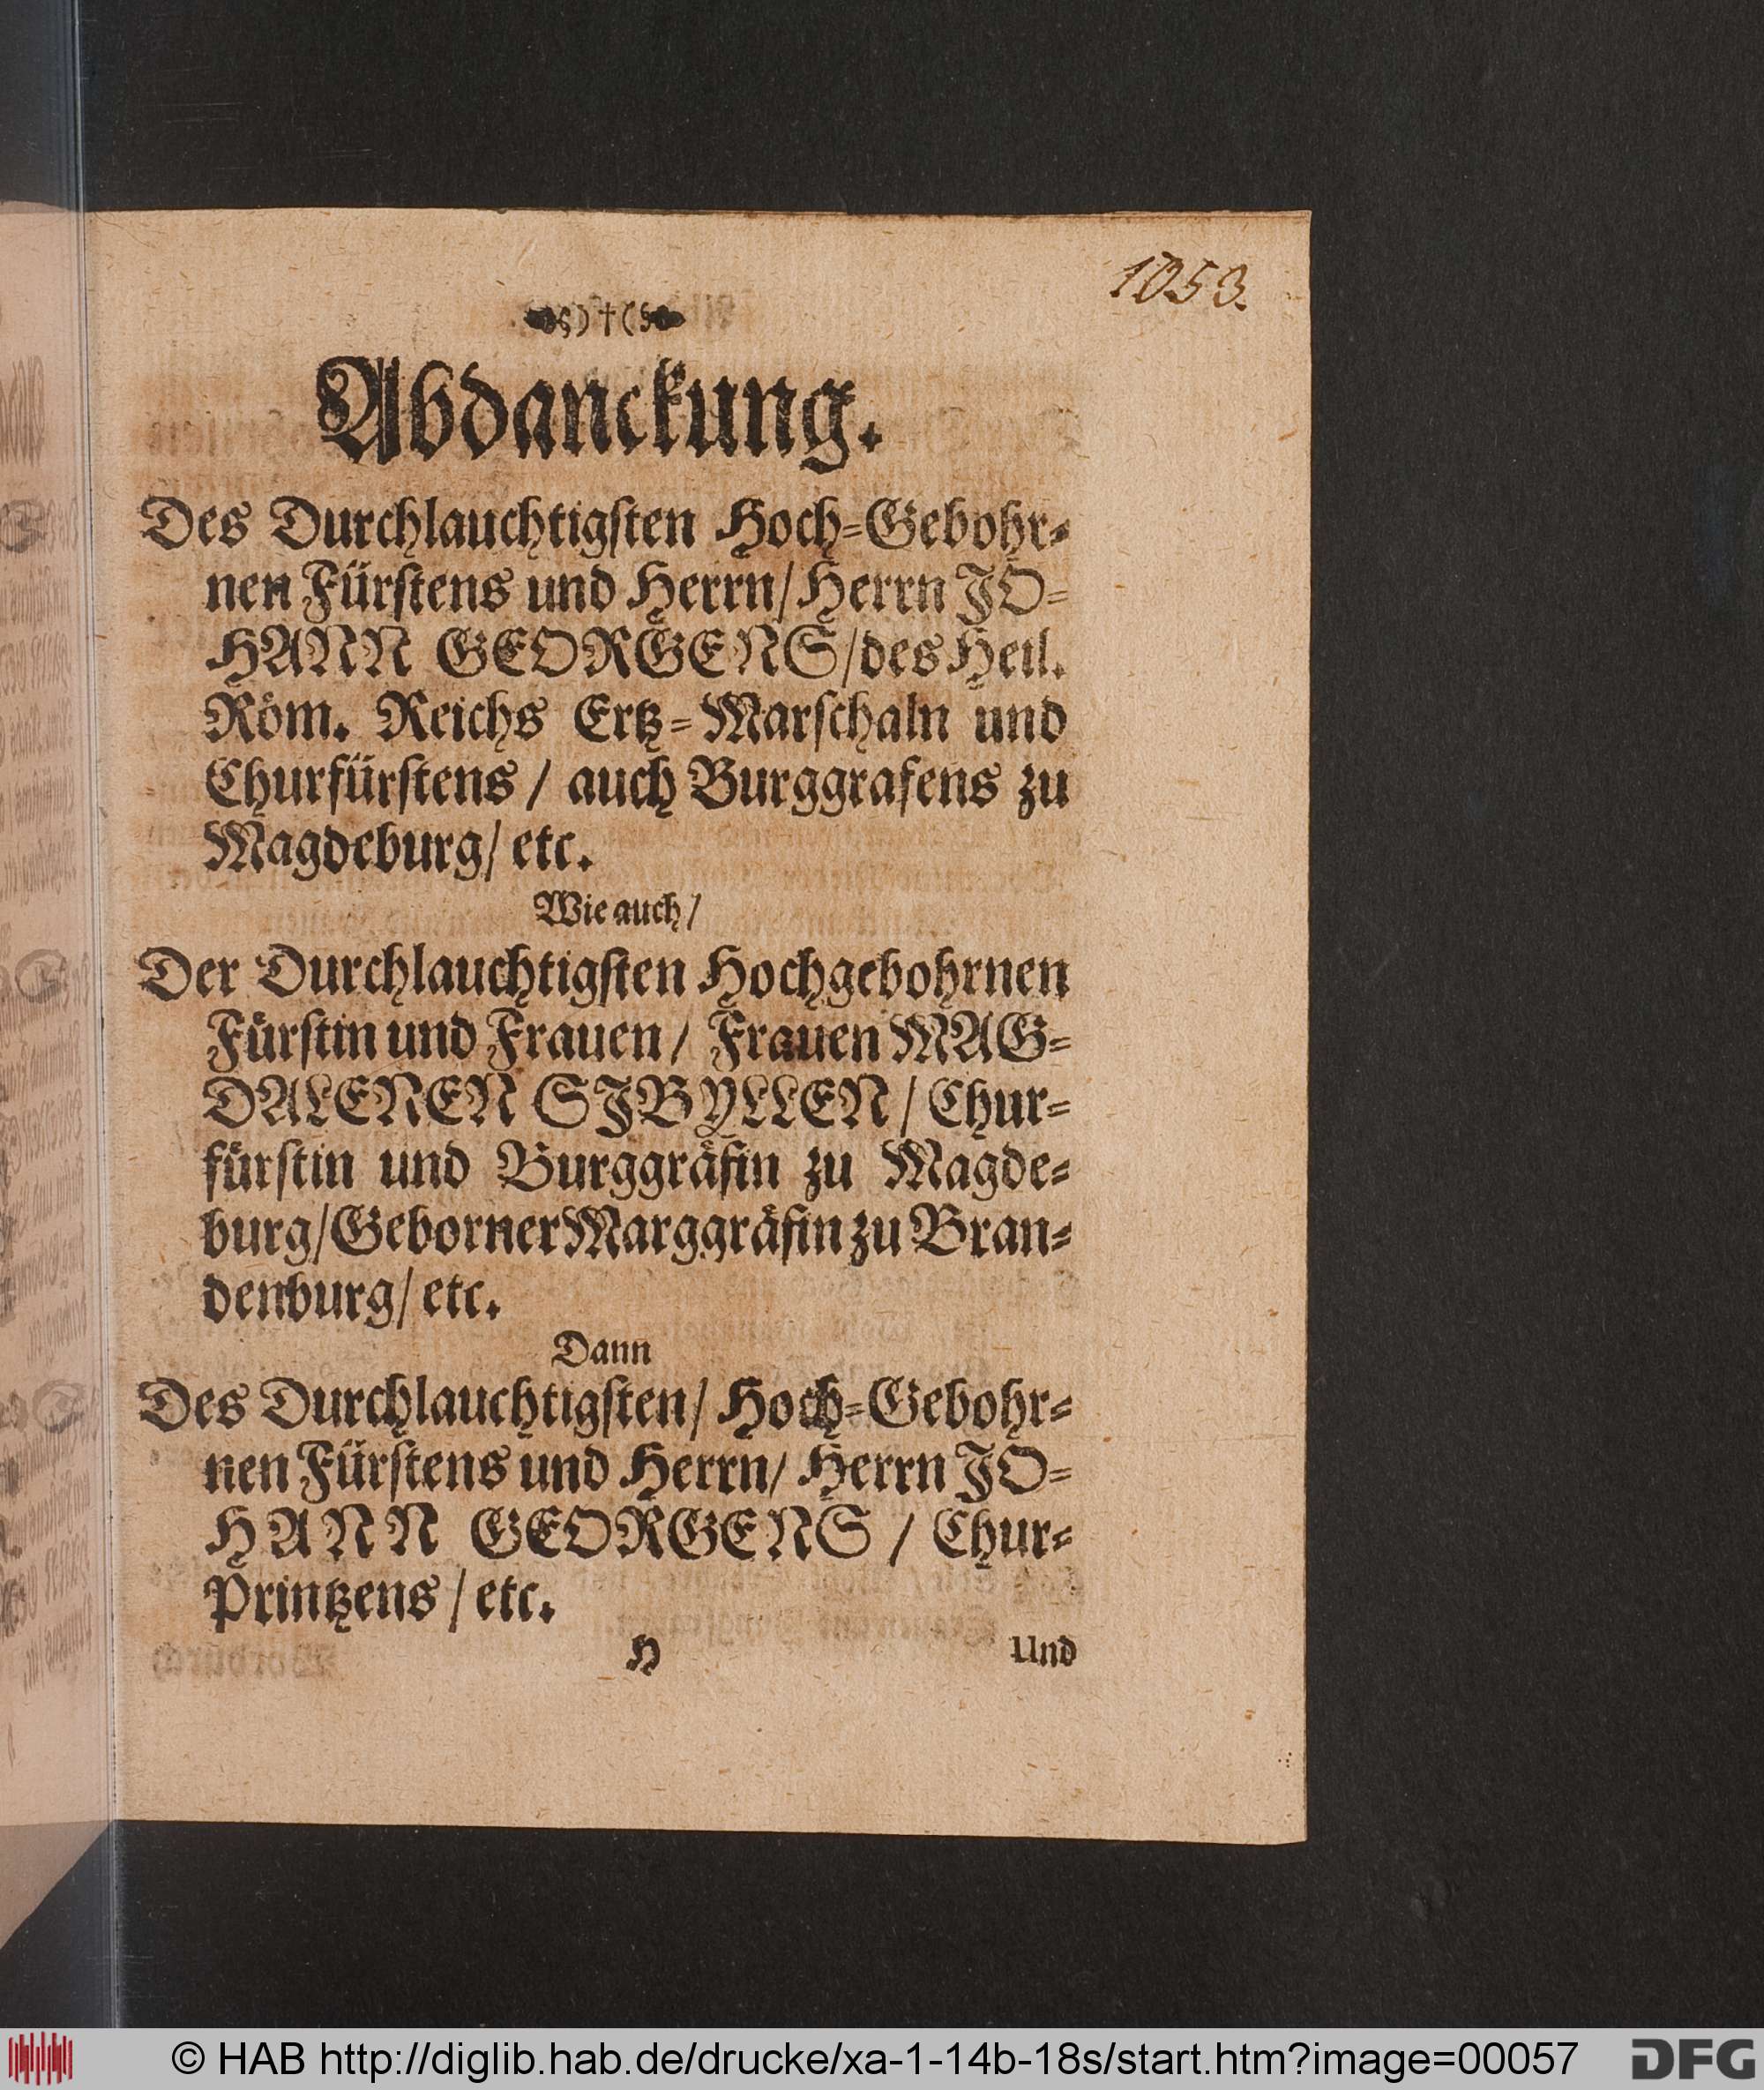 1053.
)†(
Abdanckung.
Des Durchlauchtigſten Hoch-Gebohr-
nen Fürſtens und Herrn/ Herrn JO-
HANN GEORGENS/ des Heil.
Röm. Reichs Ertz-Marſchaln und
Churfürſtens / auch Burggrafens zu
Magdeburg/ etc.
Wie auch/
Der Durchlauchtigſten Hochgebohrnen
Fürſtin und Frauen/ Frauen MAG-
DALENEN SJBYLLEN/ Chur-
fürſtin und Burggräfin zu Magde-
burg/ Geborner Marggräfin zu Bran-
denburg/ etc.
Dann
Des Durchlauchtigſten/ Hoch-Gebohr-
nen Fürſtens und Herrn/ Herrn JO-
HANN GEORGENS / Chur-
Printzens / etc.
H Und
© HAB http://diglib.hab.de/drucke/xa-1-14b-18s/start.htm?image=00057 DFG